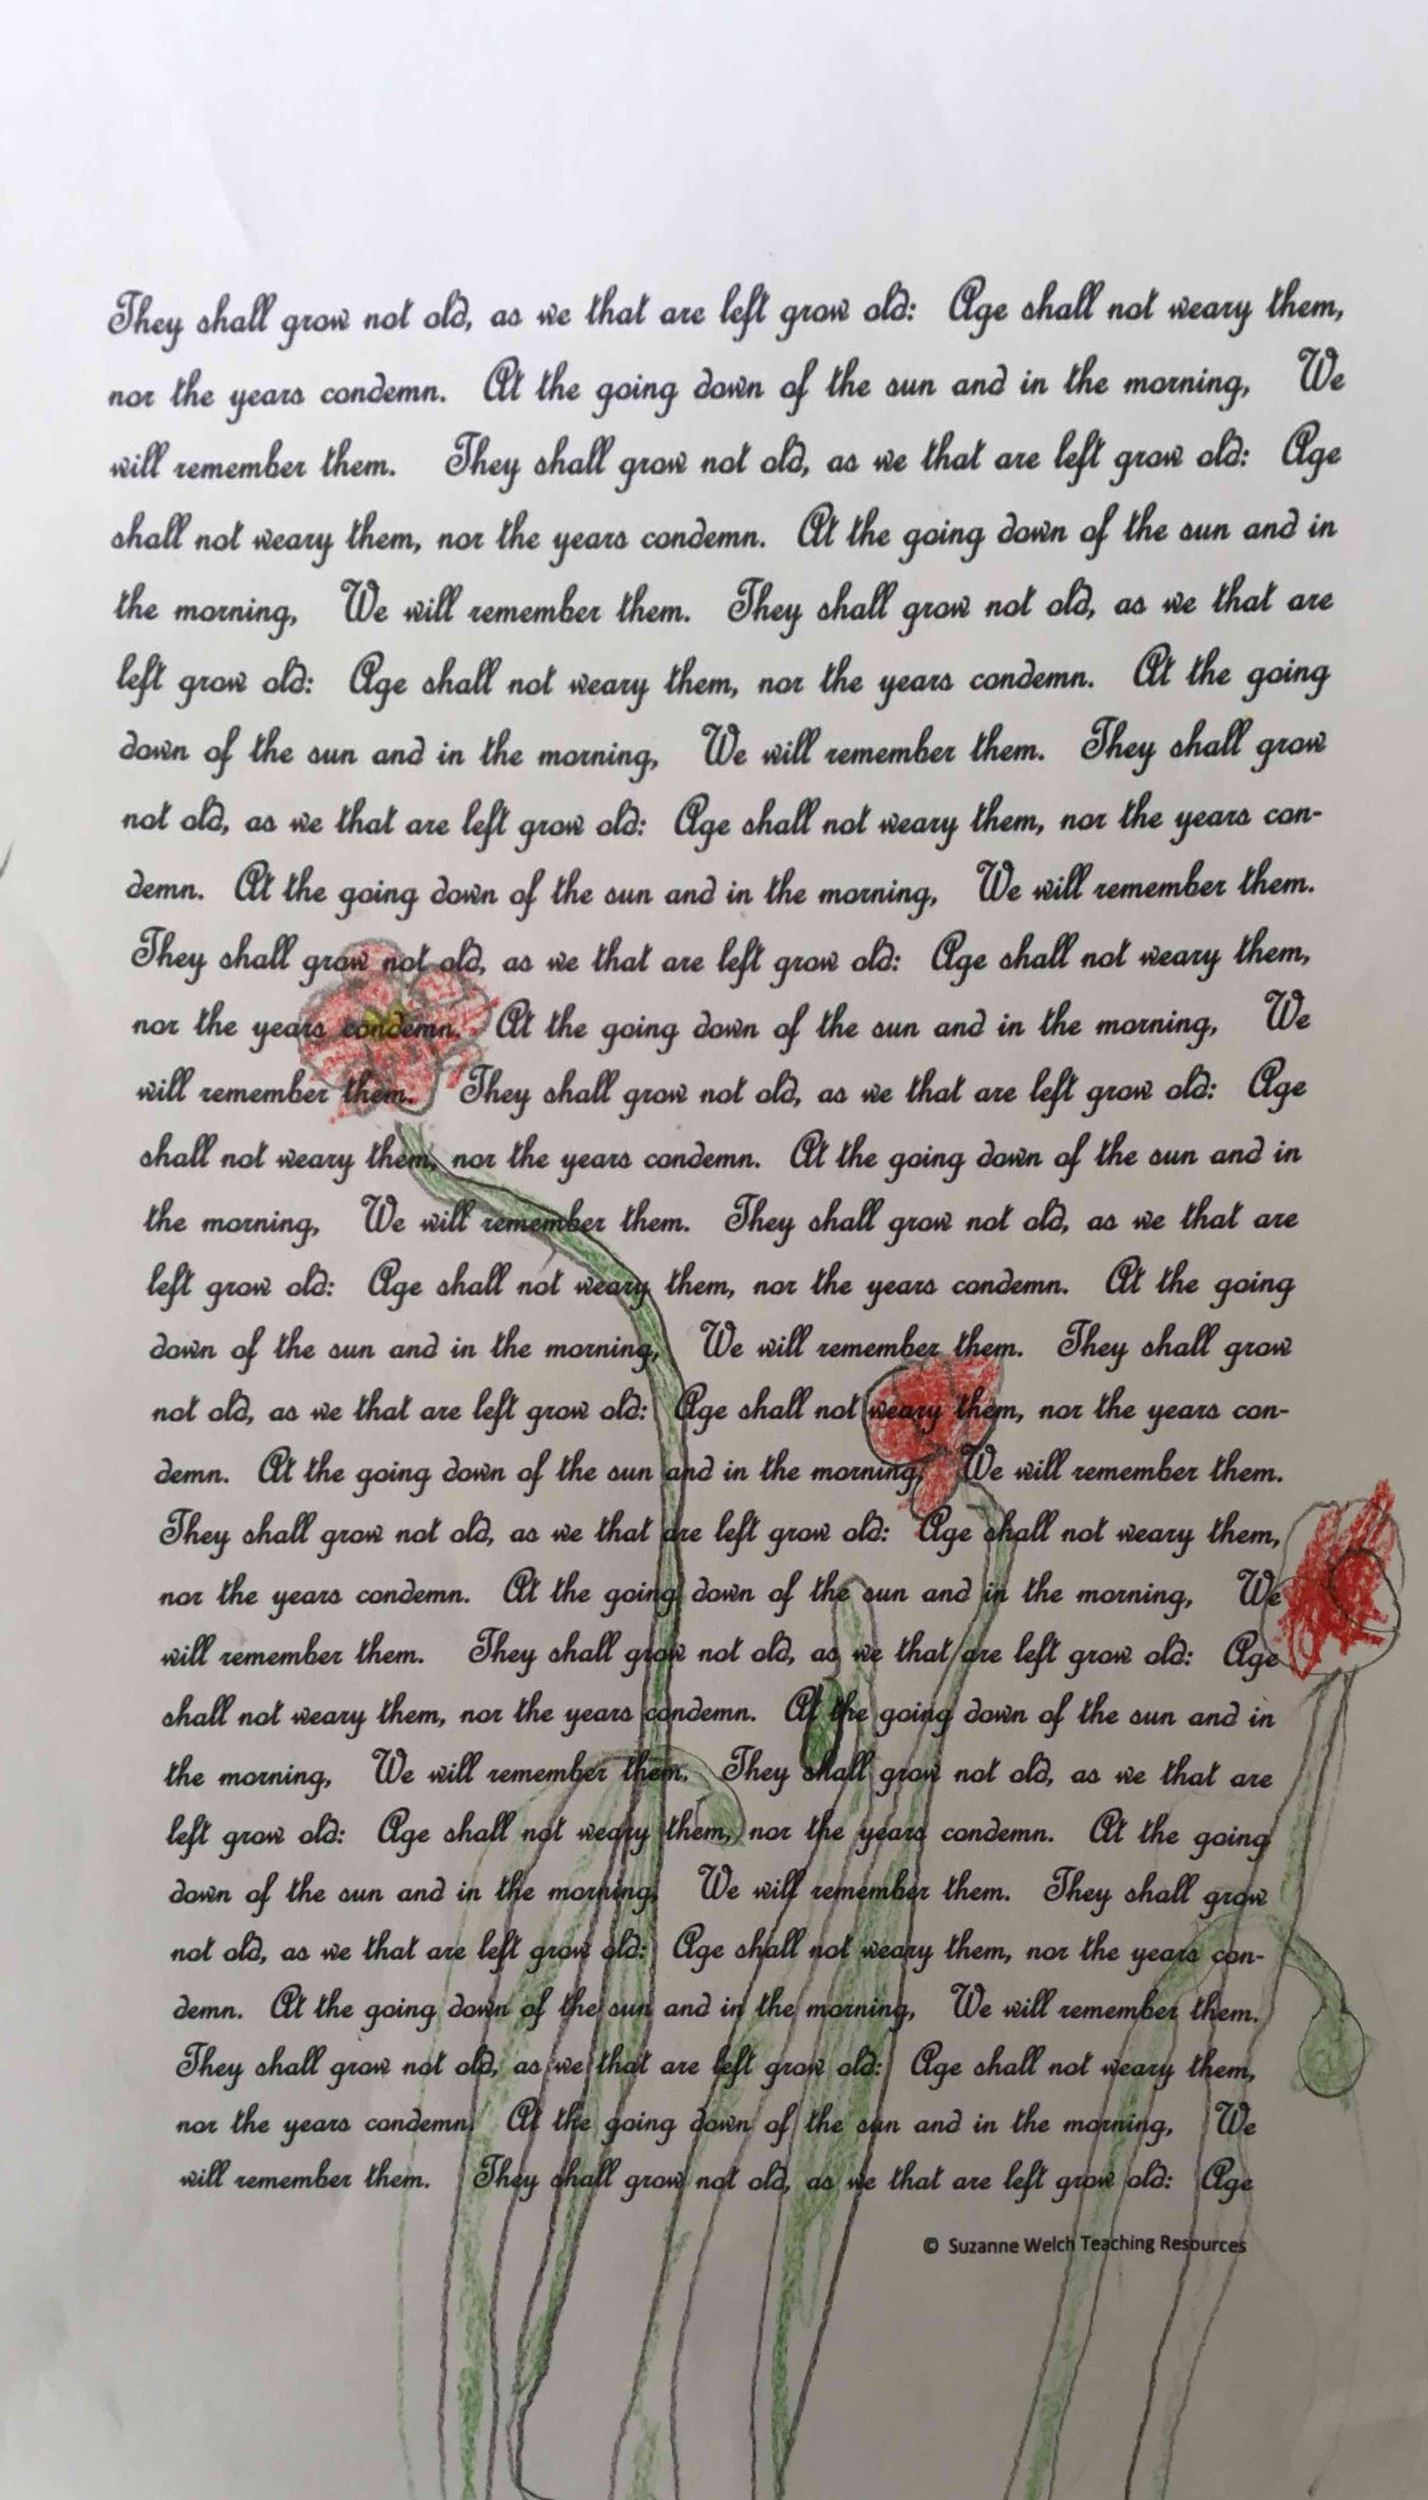 They shall grow not old, as we that are left grow old: Age shall not weary them,
nor the years condemn. At the going down of the sun and in the morning, We
will remember them. They shall grow not old, as we that are left grow old: Age
shall not weary them, nor the years condemn. At the going down of the sun and in
the morning, We will remember them. They shall grow not old, as we that are
left grow old: Age shall not weary them, nor the years condemn. At the going
down of the sun and in the morning, We will remember them. They shall grow
not old, as we that are left grow old: Age shall not weary them, nor the years con-
demn. At the going down of the sun and in the morning, We will remember them.
They shall grow not old, as we that are left grow old: Age shall not weary them,
nor the years condemn. At the going down of the sun and in the morning, We
will remember them. They shall grow not old, as we that are left grow old: Age
shall not weary them, nor the years condemn. At the going down of the sun and in
the morning, We will remember them. They shall grow not old, as we that are
left grow old: Age shall not weary them, nor the years condemn. At the going
down of the sun and in the morning, We will remember them. They shall grow
not old, as we that are left grow old: Age shall not weary them, nor the years con-
demn. At the going down of the sun and in the morning, We will remember them.
They shall grow not old, as we that are left grow old: Age shall not weary them,
nor the years condemn. At the going down of the sun and in the morning, We
will remember them. They shall grow not old, as we that are left grow old: Age
shall not weary them, nor the years condemn. At the going down of the sun and in
the morning, We will remember them. They shall grow not old, as we that are
left grow old: Age shall not weary them, nor the years condemn. At the going
down of the sun and in the morning, We will remember them. They shall grow
not old, as we that are left grow old: Age shall not weary them, nor the years con-
demn. At the going down of the sun and in the morning, We will remember them.
They shall grow not old, as we that are left grow old: Age shall not weary them,
nor the years condemn. At the going down of the sun and in the morning, We
will remember them. They shall grow not old, as we that are left grow old: Age
© Suzanne Welch Teaching Resources